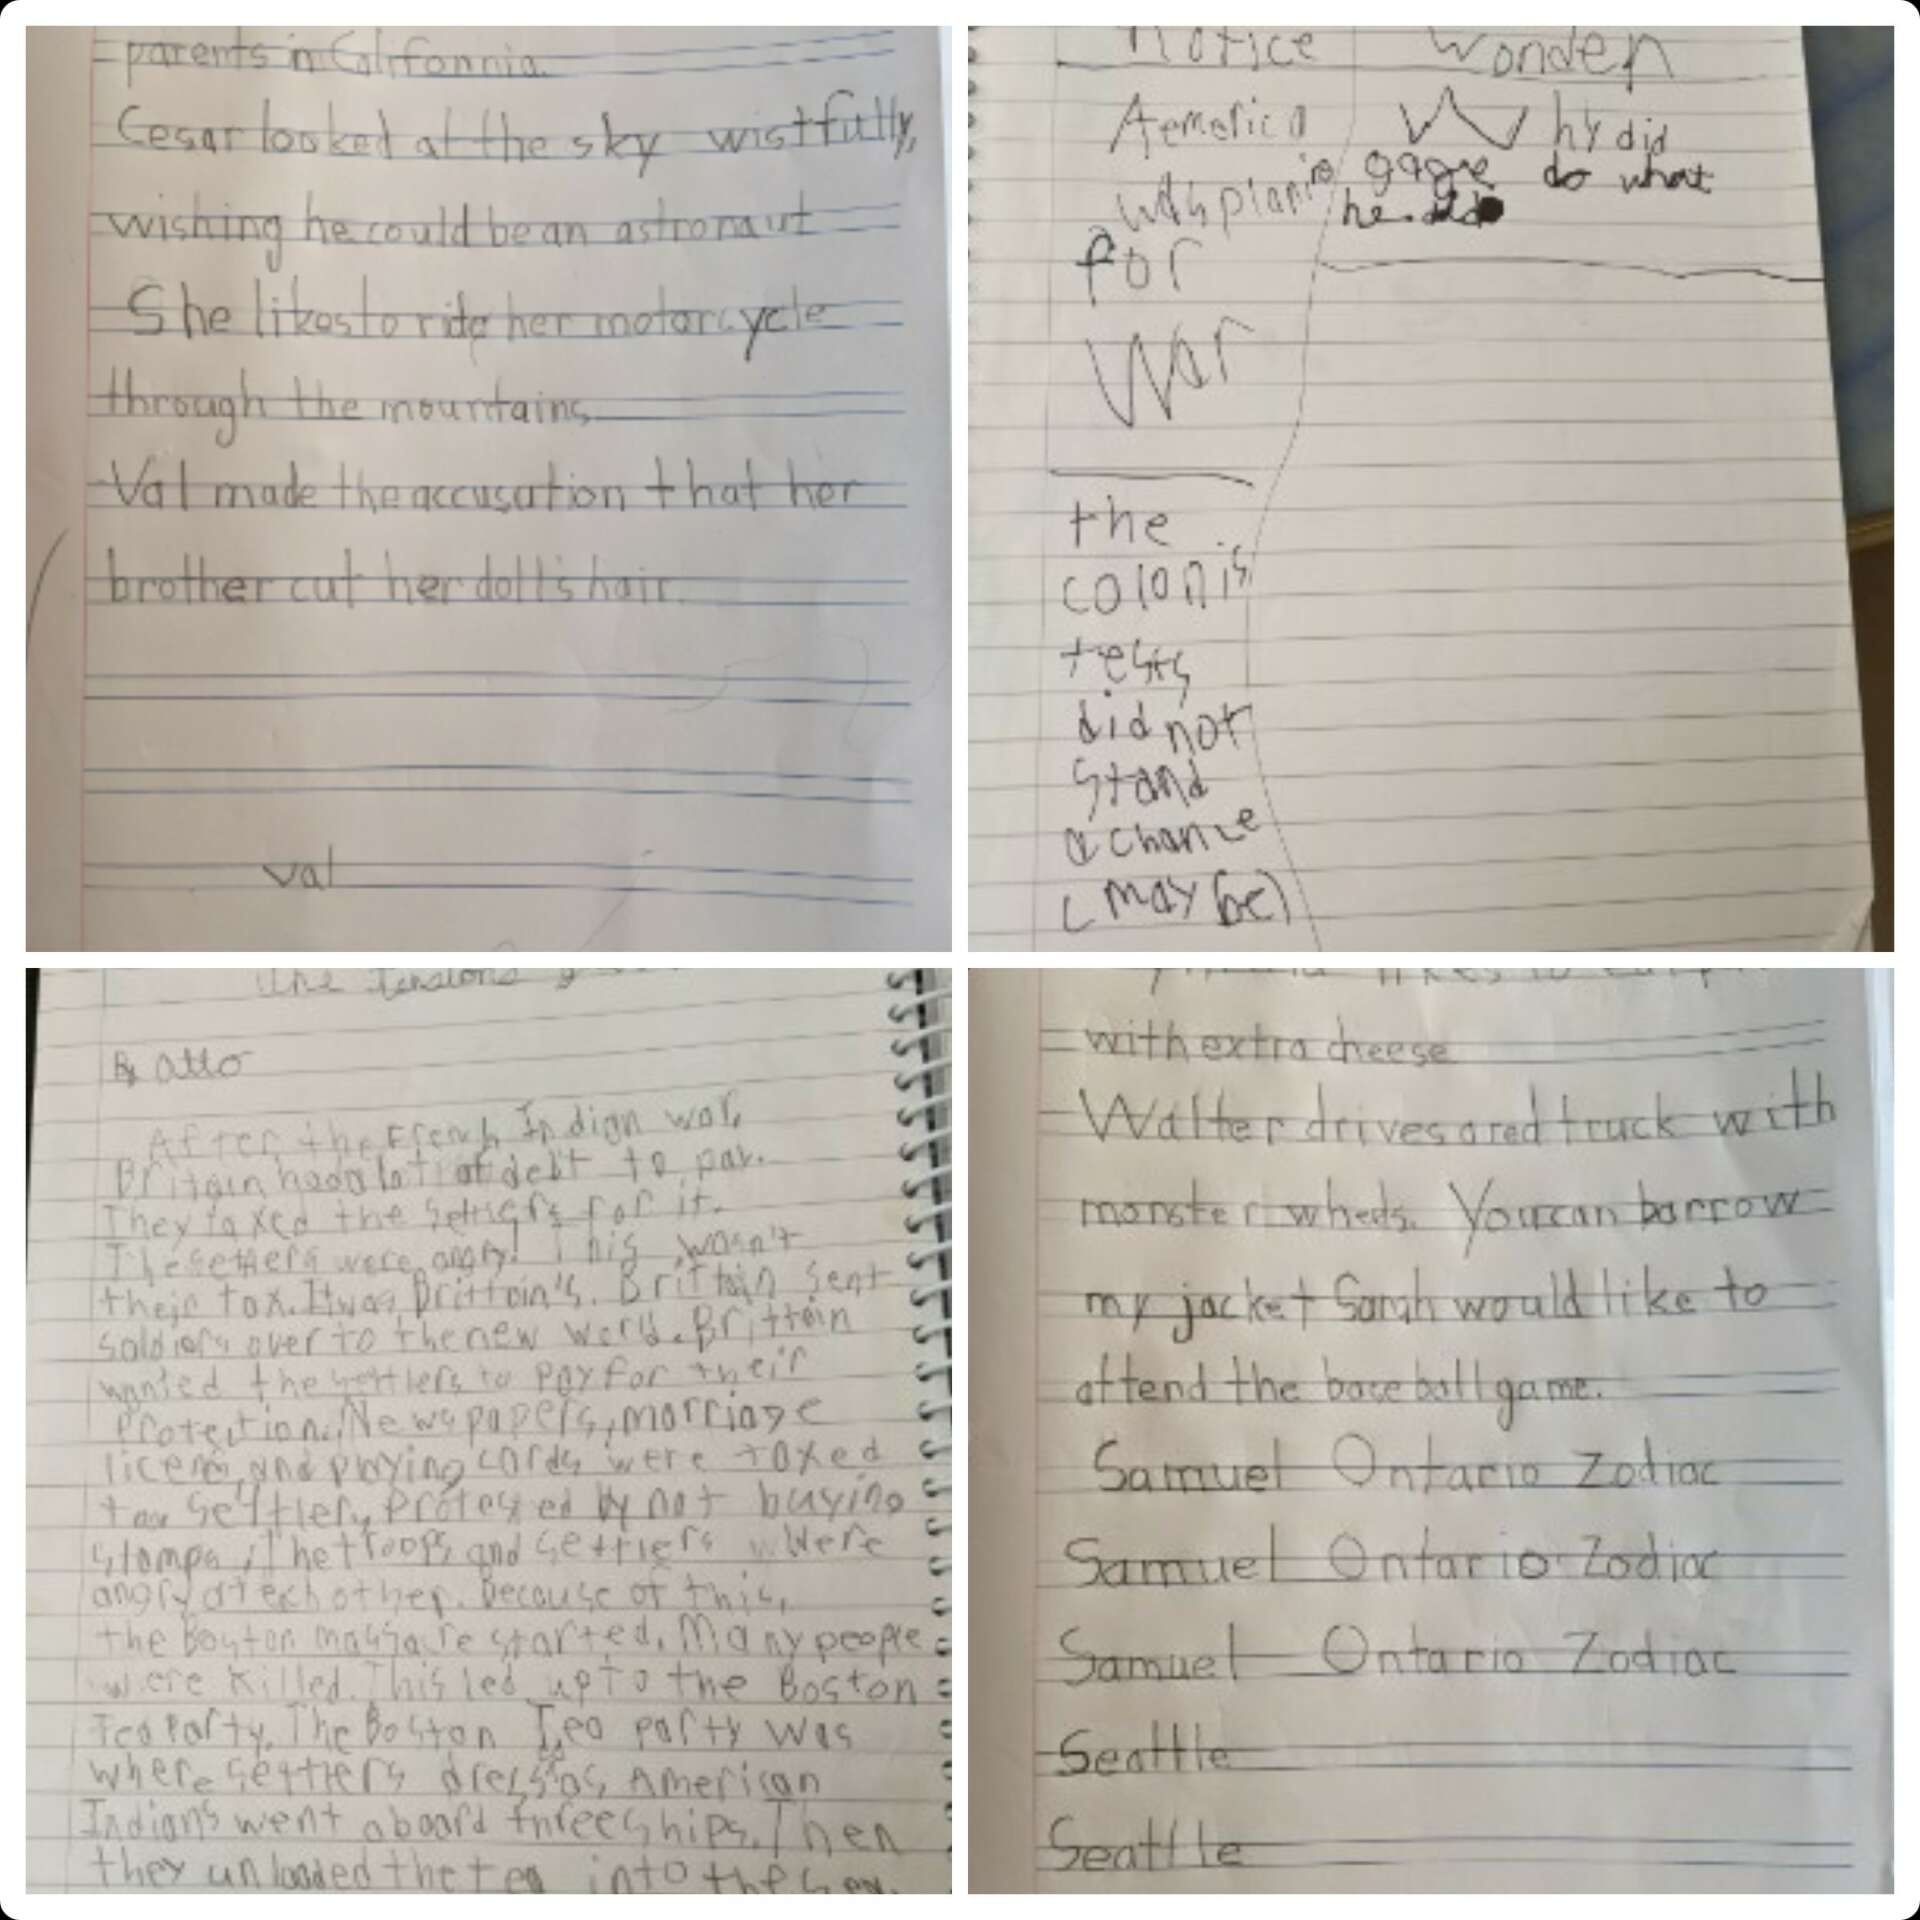 parents in Califonnia.
Cesar looked at the sky wistfully,
wishing he could be an astronaut
She likes to ride her motorcycle
through the mountains
Val made the accusation that her
brother cut her doll's hair.
val
notice wonden
Aemerica
was planing
for
War
the
colonis
tests
did not
stand
a chance
(may be)
Why did
gagne do what
he did
The Tensions
By Otto
After the French Indian war,
Britain had a lot of debt to pay.
They taxed the settlers for it.
The settlers were angry! This wasn't
their tax. It was Brittain's. Brittain sent
soldiers over to the new world. Brittain
wanted the settlers to pay for their
Protection. Newspapers, marriage
and playing cards were taxed
too settlers protested by not buying
stamps. The troops and settlers were
angry at ech other. Because of this,
the Boston massacre started. Many people
were killed. This led up to the Boston
Tea Party. The Boston Tea party was
where settlers dress as American
Indians went aboard three ships. Then
they unloaded the tea into the sea.
with extra cheese
Walter drives a red truck with
monster wheels. You can barrow
my jacket Sarah would like to
attend the baseball game.
Samuel Ontario Zodiac
Samuel Ontario Zodiac
Samuel Ontario Zodiac
Seattle
Seattle